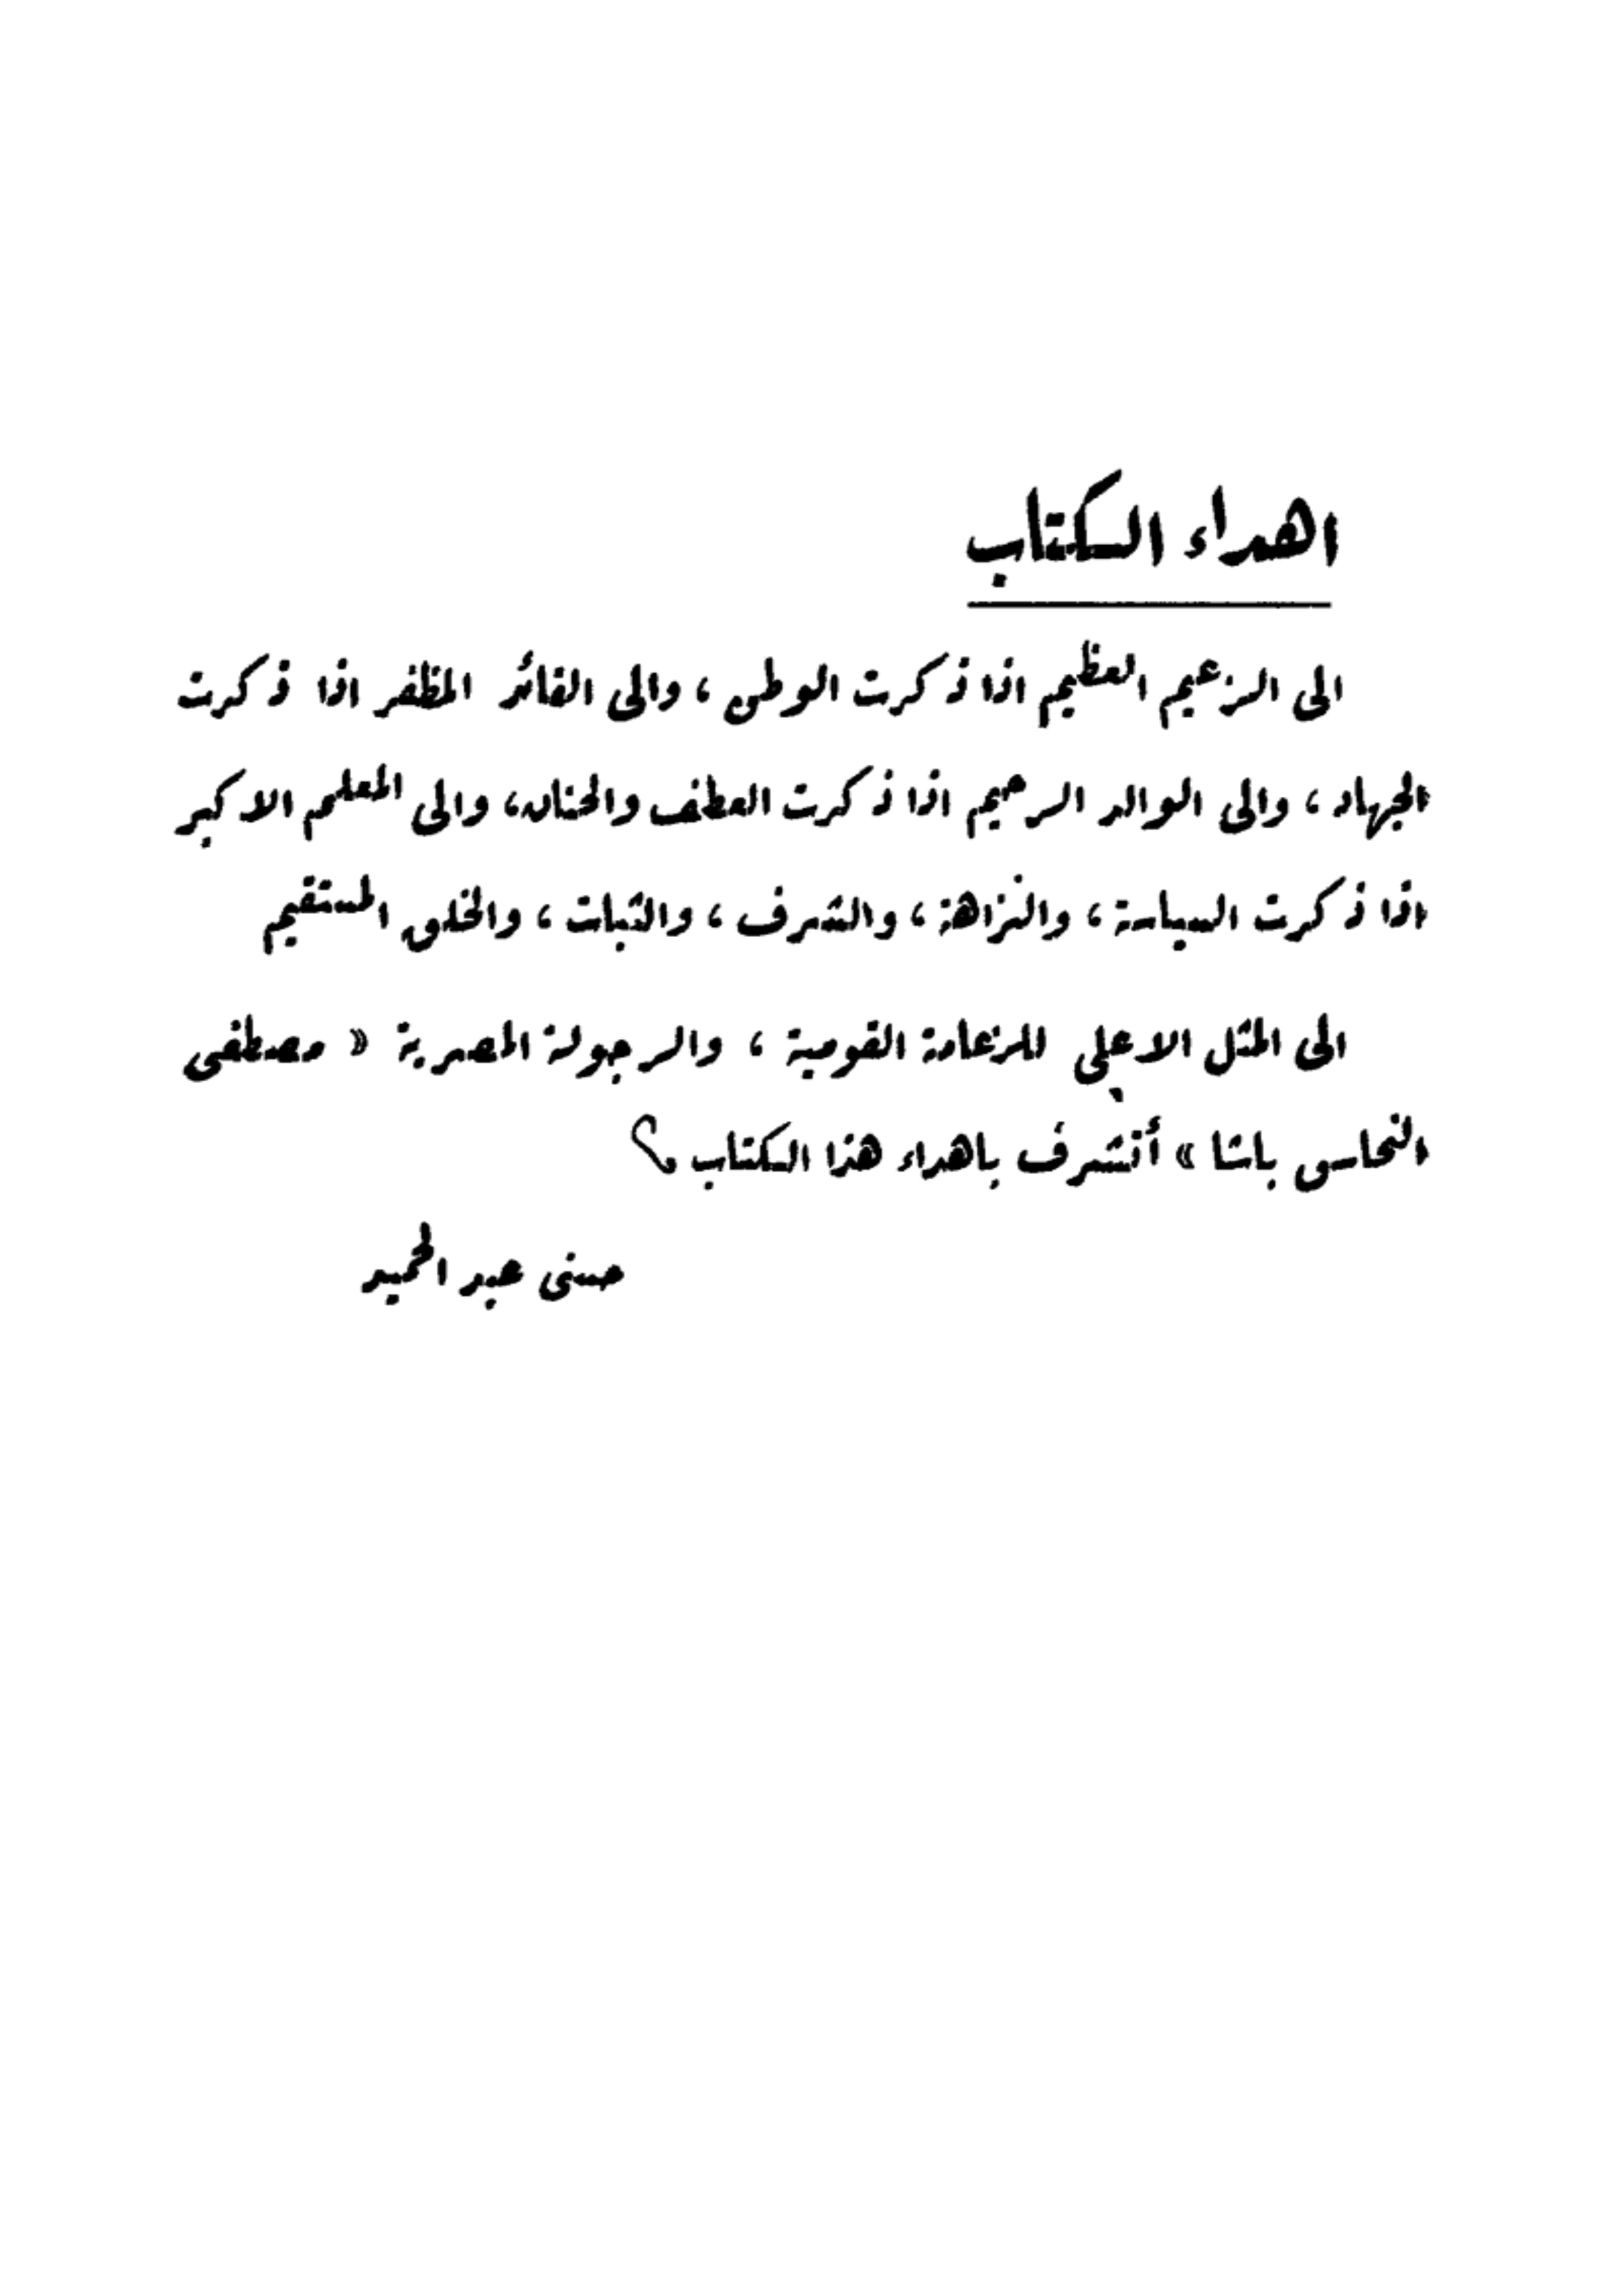 اهداء الكتاب
الى الزعيم العظيم اذا ذكرت الوطن ، والى القائد المظفر اذا ذكرت
الجهاد ، والى الوالد الرحيم اذا ذكرت العطف والحنان ، والى المعلم الاكبر
اذا ذكرت السياسة ، والنزاهة ، والشرف ، والثبات ، والخلق المستقيم
الى المثل الاعلى للزعامة القومية ، والرجولة المصرية « مصطفى
النحاس باشا » أتشرف باهداء هذا الكتاب
حسنى عبد الحميد